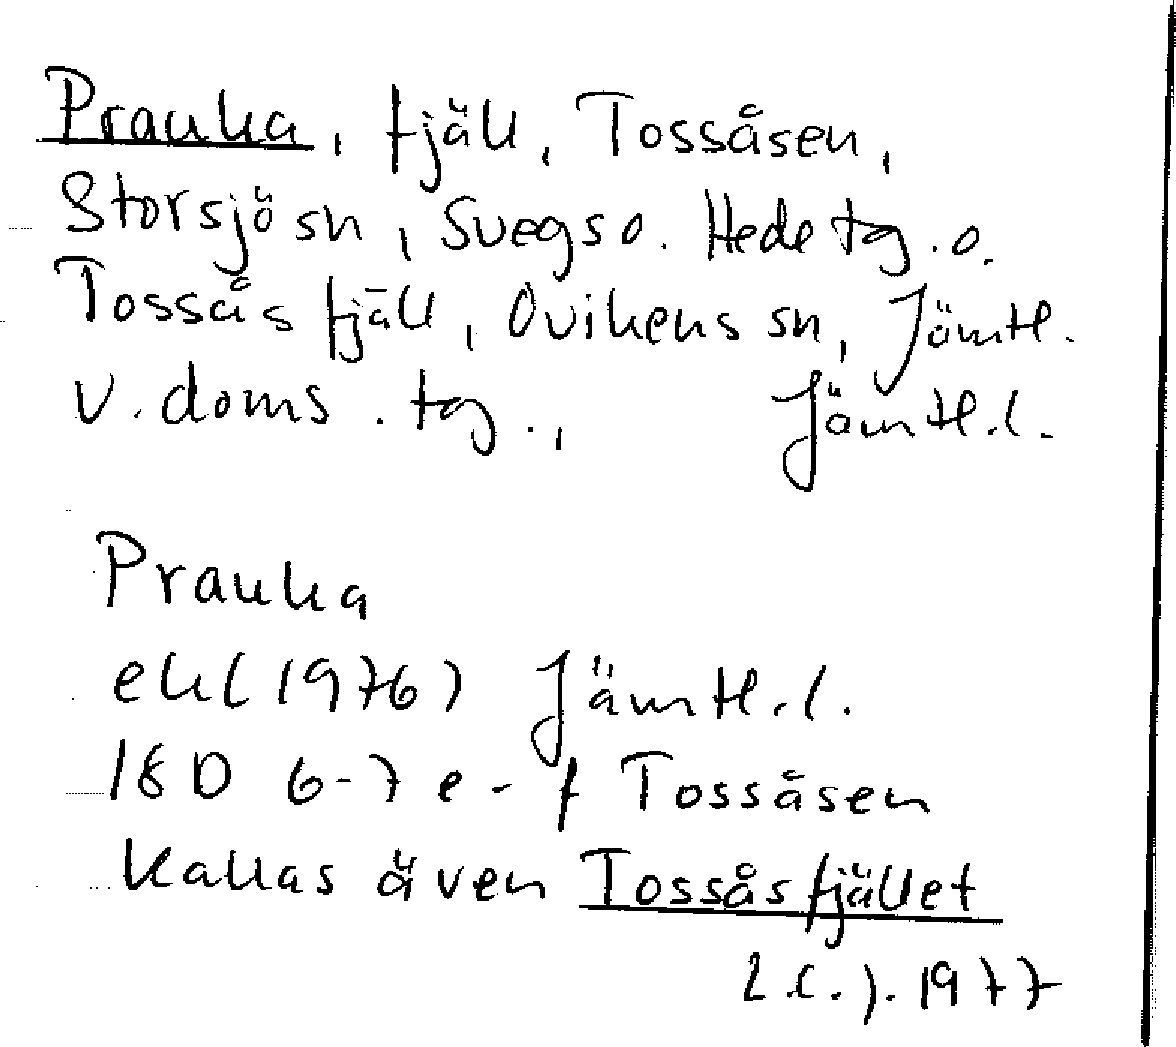 Prauka, fjäll, Tossåsen,
Storsjö sn, Svegs o. Hede tg. o.
Tossås fjäll, Ovikens sn, Jämtl.
V. doms. tg., Jämtl.l.
Prauka
ek(1976) Jämtl.l.
18 D 6-7 e-f Tossåsen
Kallas även Tossåsfjället
1977